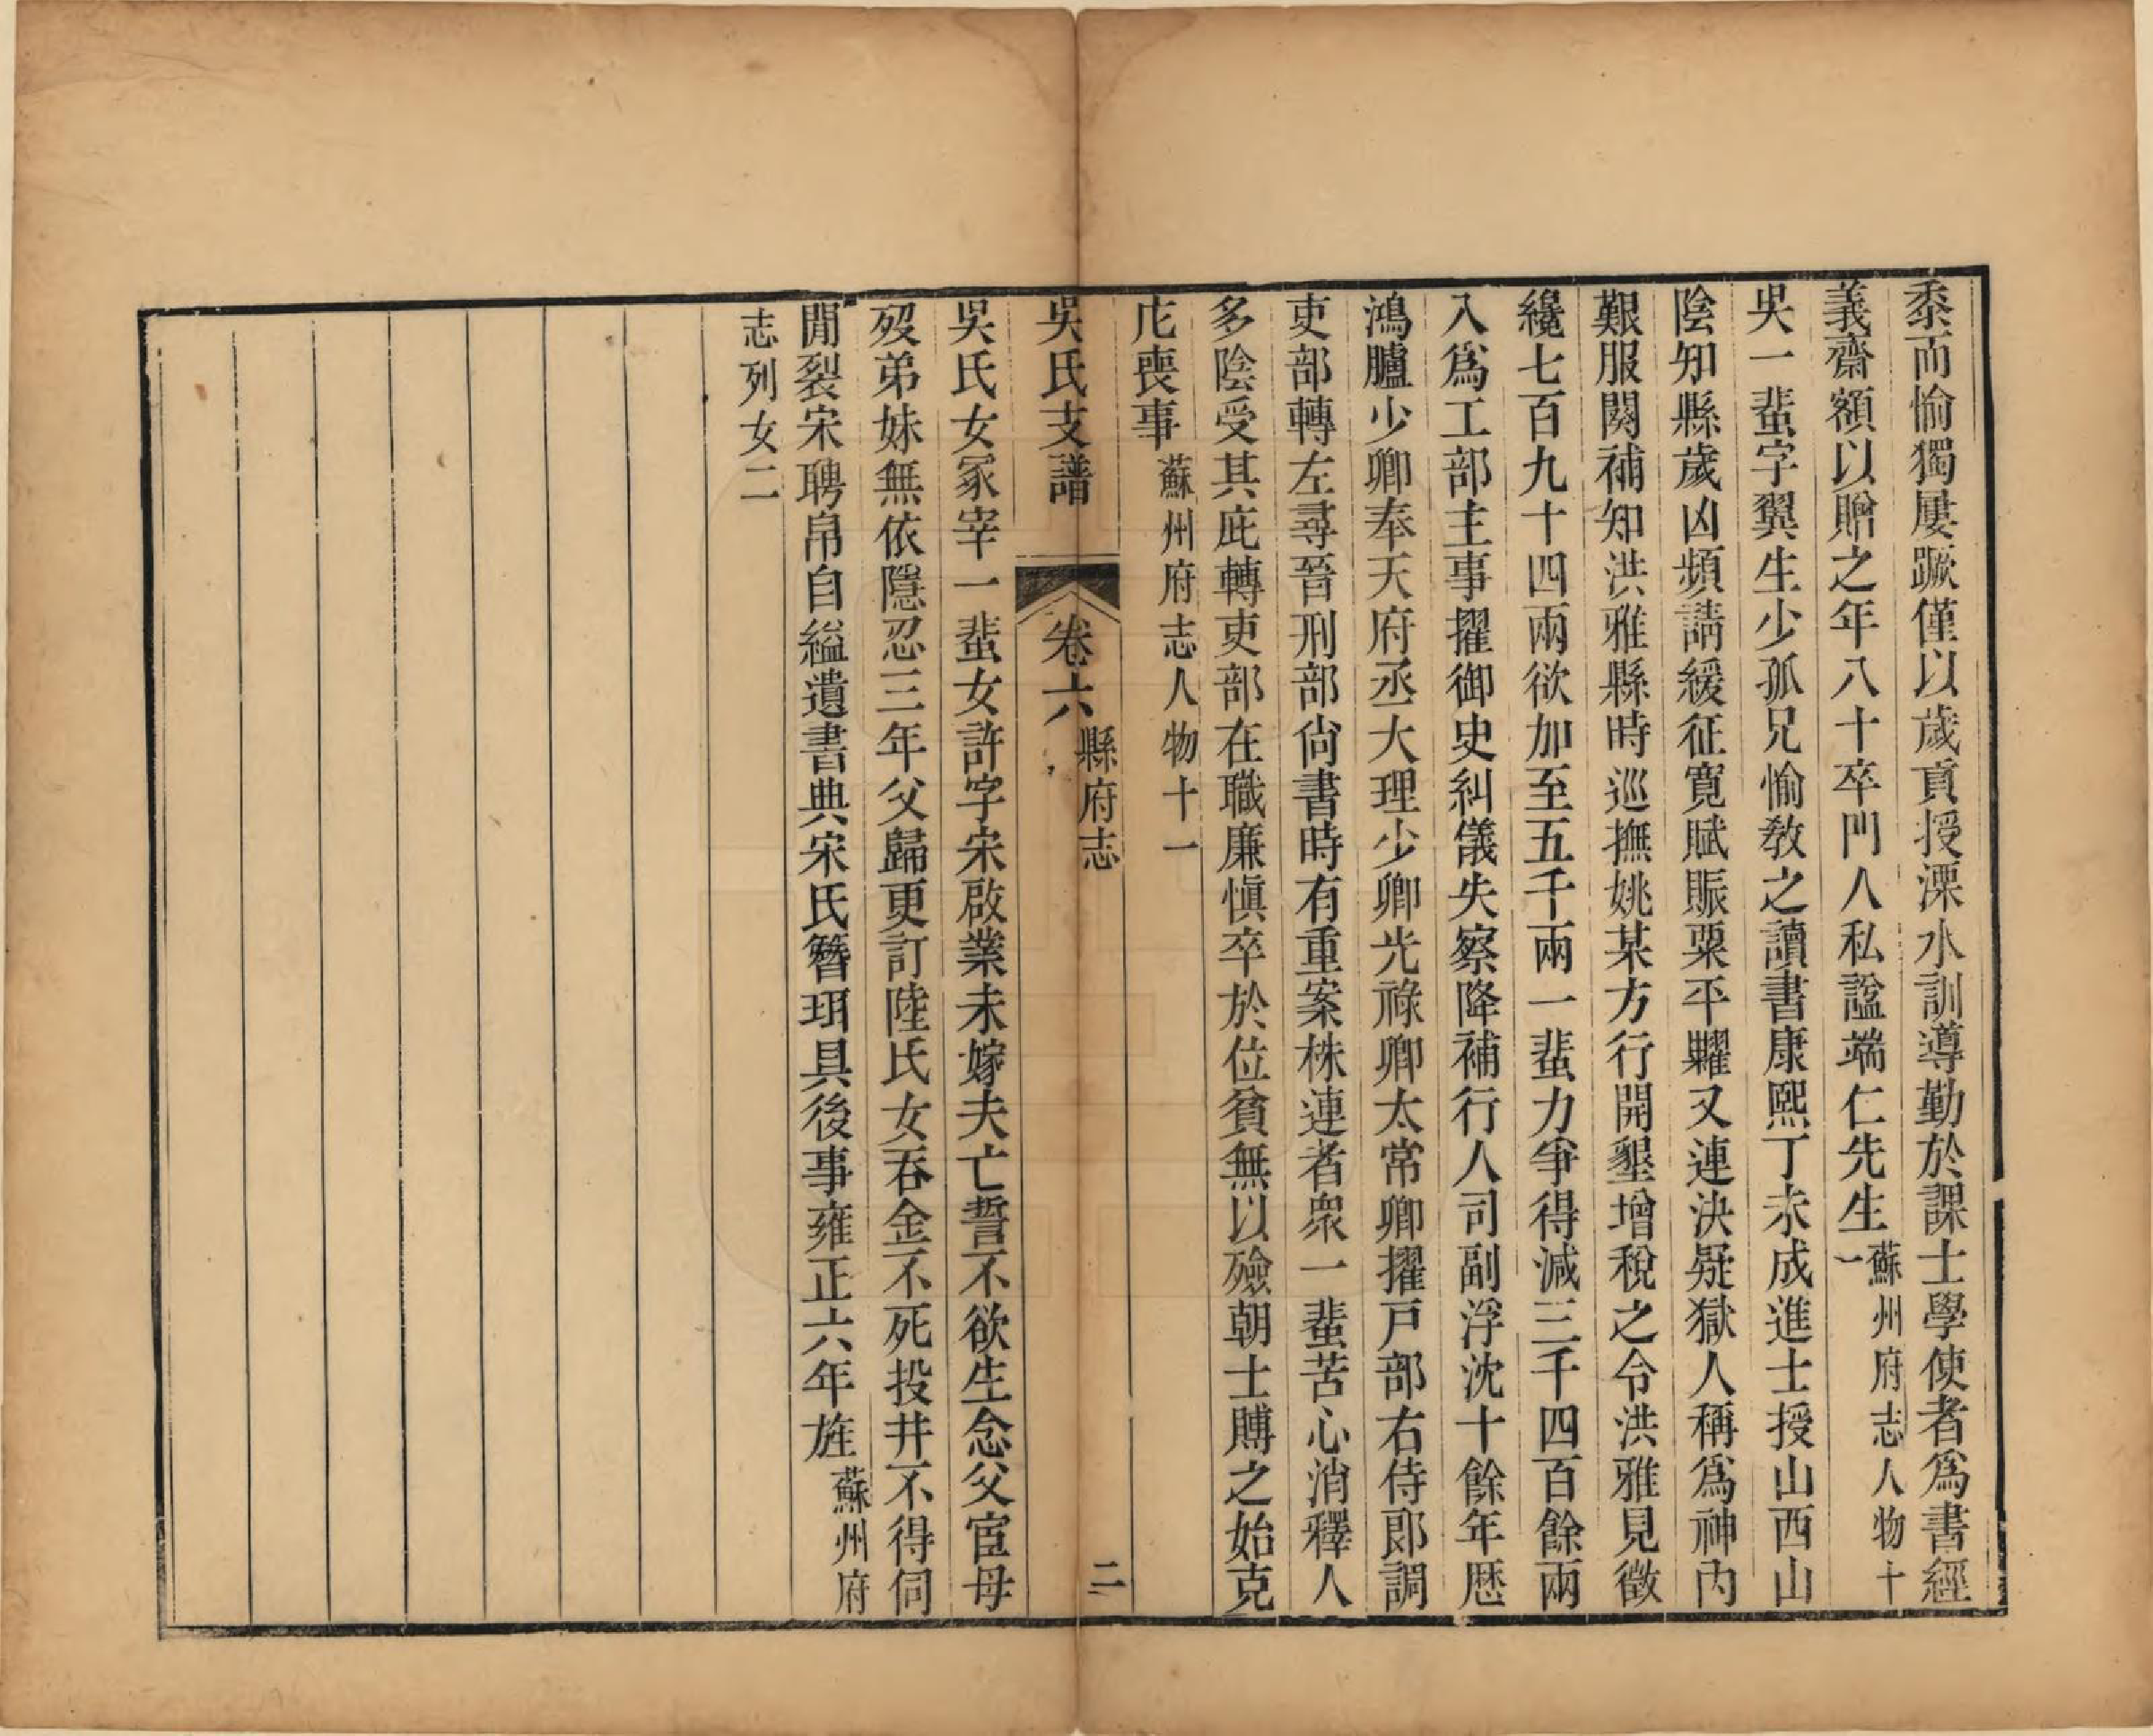 黍而愉獨屢蹶僅以歲貢授溧水訓導勤於課士學使者爲書經
義齋額以贈之年八十卒門人私諡端仁先生蘇州府志人物十一
吳一蜚字翼生少孤兄愉敎之讀書康熙丁未成進士授山西山
陰知縣歲凶頻請緩征寬賦賑粟平糶又連決疑獄人稱爲神內
艱服闋補知洪雅縣時巡撫姚某方行開墾增稅之令洪雅見徵
纔七百九十四兩欲加至五千兩一蜚力爭得減三千四百餘兩
入爲工部主事擢御史糾儀失察降補行人司副浮沈十餘年歷
鴻臚少卿奉天府丞大理少卿光祿卿太常卿擢戸部右侍郎調
吏部轉左尋晉刑部尙書時有重案株連者衆一蜚苦心消釋人
多陰受其庇轉吏部在職廉愼卒於位貧無以殮朝士賻之始克
庀喪事蘇州府志人物十一
吳氏支譜 卷六 縣府志 二
吳氏女冢宰一蜚女許字宋啟業未嫁夫亡誓不欲生念父宦母
歿弟妹無依隱忍三年父歸更訂陸氏女吞金不死投井不得伺
閒裂宋聘帛自縊遺書典宋氏簪珥具後事雍正六年旌蘇州府
志列女二